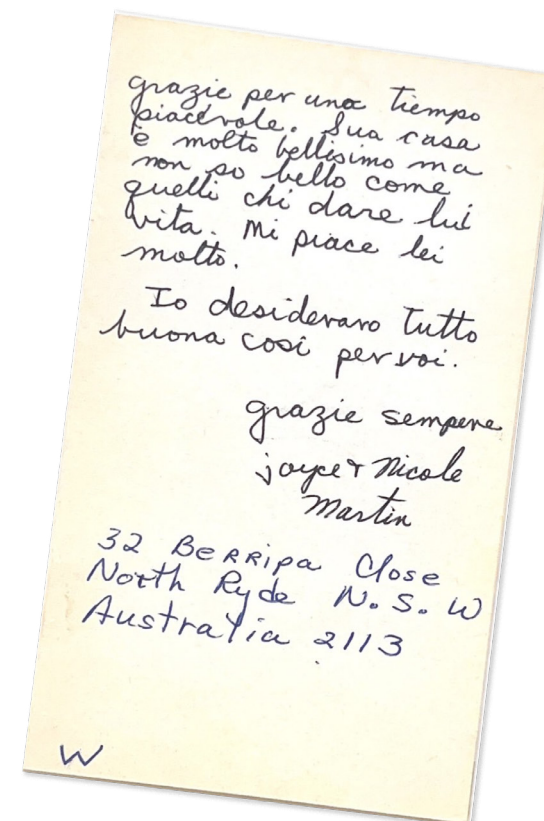 grazie per una tiempo
piacévole. Sua casa
è molto bellisimo ma
non so bello come
quelli chi dare lui
vita. Mi piace lei
molto.
Io desideraro tutto
buona così per voi.
grazie sempere
joyce & Nicole
Martin
32 Berripa Close
North Ryde N.S.W
Australia 2113
W